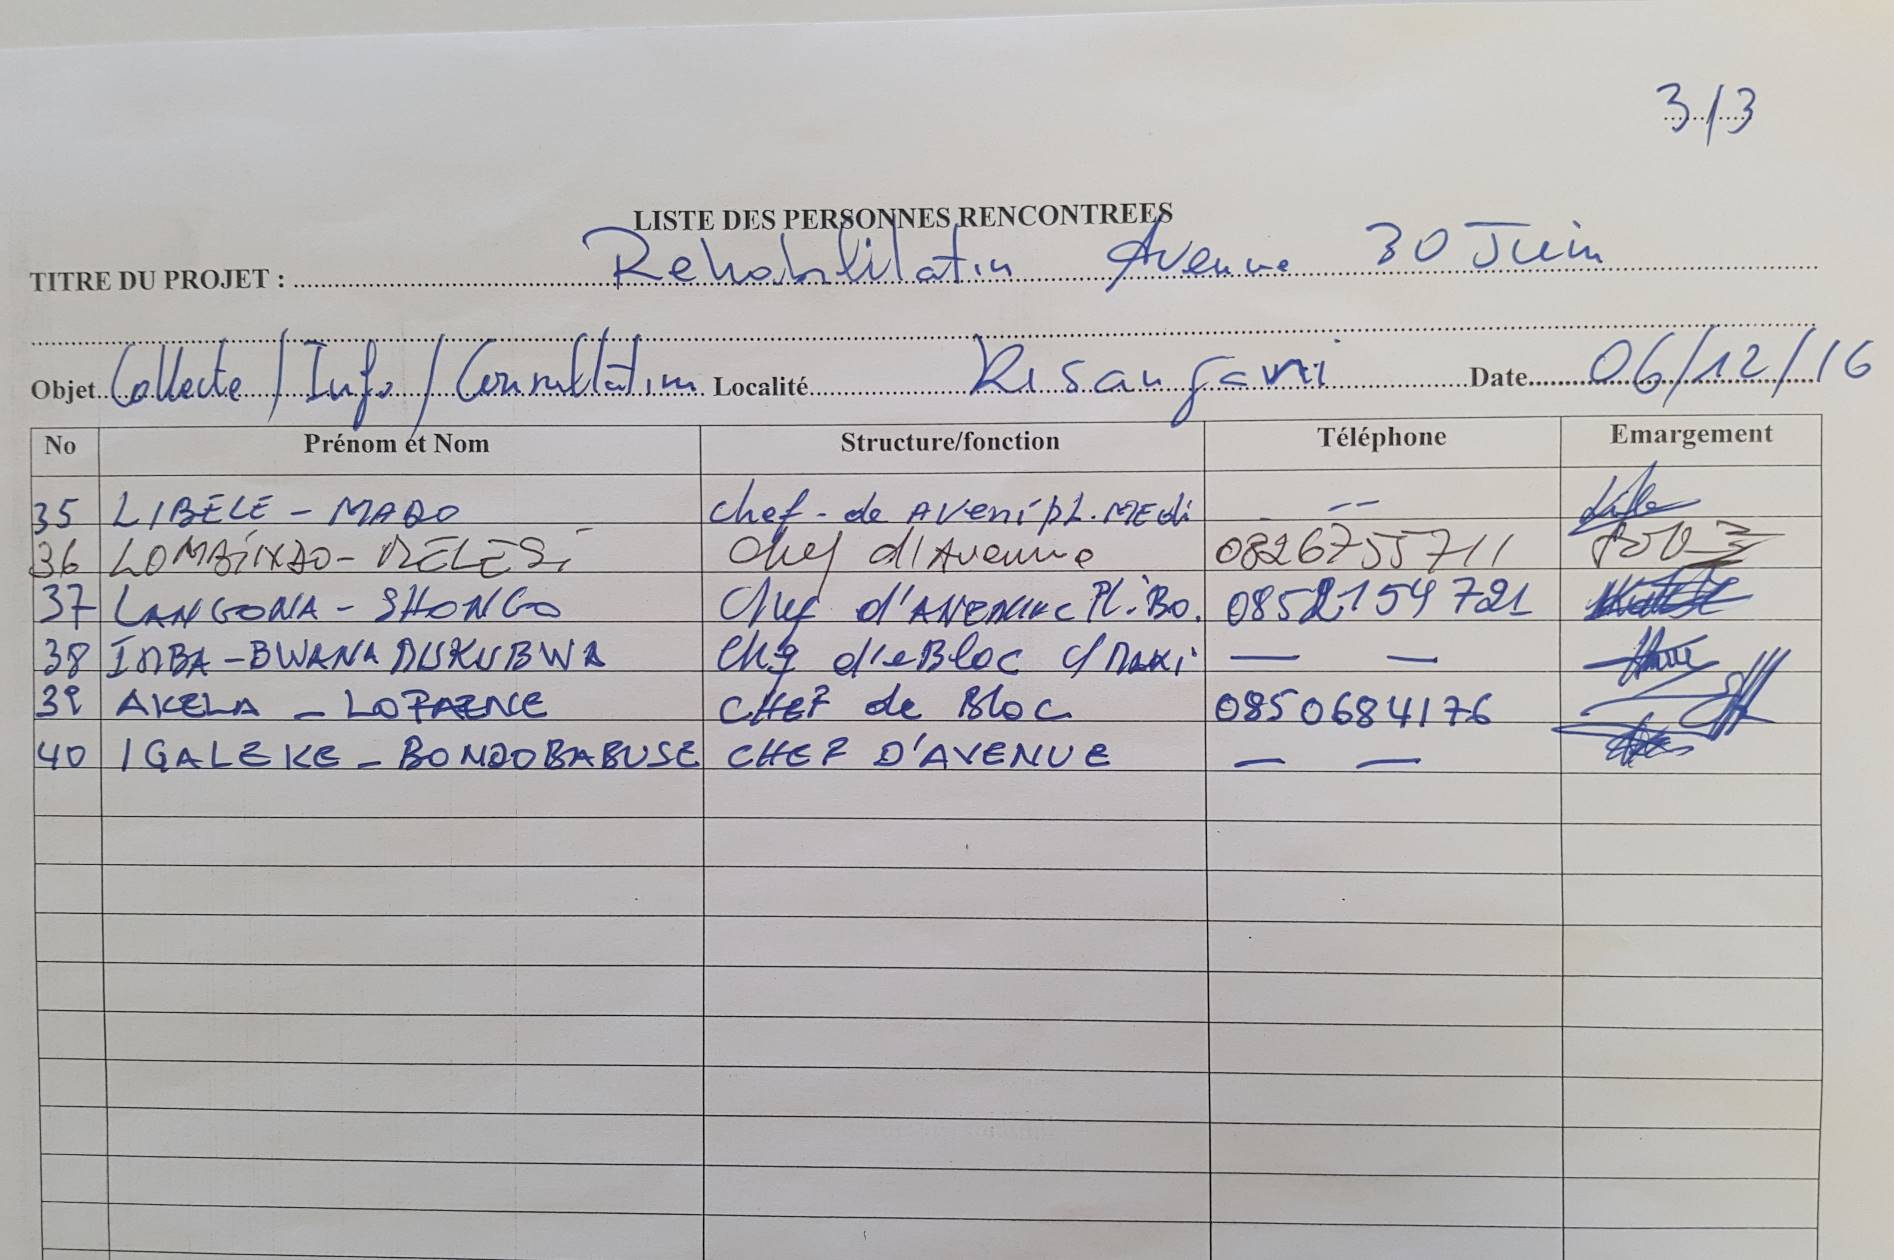 3/3
LISTE DES PERSONNES RENCONTREES
TITRE DU PROJET : Rehabilitatin Avenue 30 Juin
Objet Collecte / Info / Consultation Localité Kisangani Date 06/12/16
No Prénom et Nom Structure/fonction Téléphone Emargement
35 LIBELE - MADO chef - de AVeni pl. MEdi --
36 Chef d'Avenue 0826755711
37 LANGONA - SHONGO Chef d'AVENUE Pl. Bo. 0852154721
38 IMBA - BWANA MUKUBWA Chef de Bloc — —
39 AKELA - CHEF de Bloc 0850684176
40 IGALEKE - BONDOBABUSE CHEF D'AVENUE — —